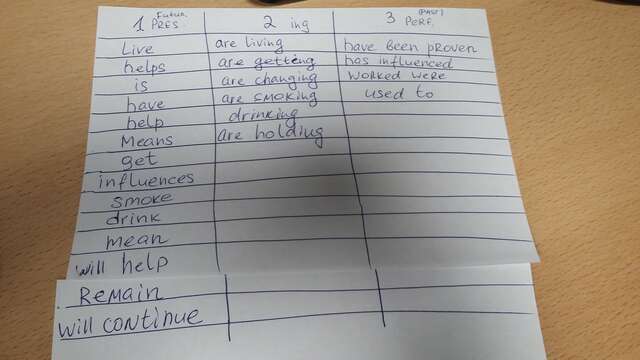 Futur. (PAST)
1 PRES. 2 ing 3 PERF.
Live are living have been proven
helps are getting has influenced
is are changing worked were
have are smoking used to
help drinking
Means are holding
get
influences
smoke
drink
mean
will help
Remain
will continue